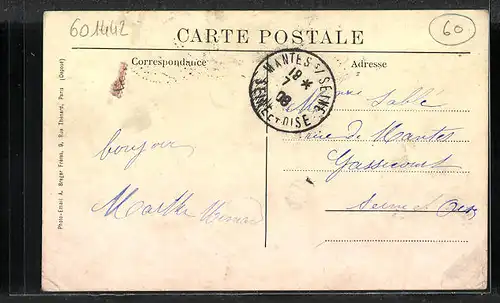 601442
60
CARTE POSTALE
Correspondance
Adresse
MANTES S/ SEINE
18 *
08
SEINE ET OISE
Sablé
rue de Mantes
Gassicourt
Seine et Oise
bonjour
Marthe
Photo-Email A. Breger Frères, 9, Rue Thénard, Paris (Déposé)